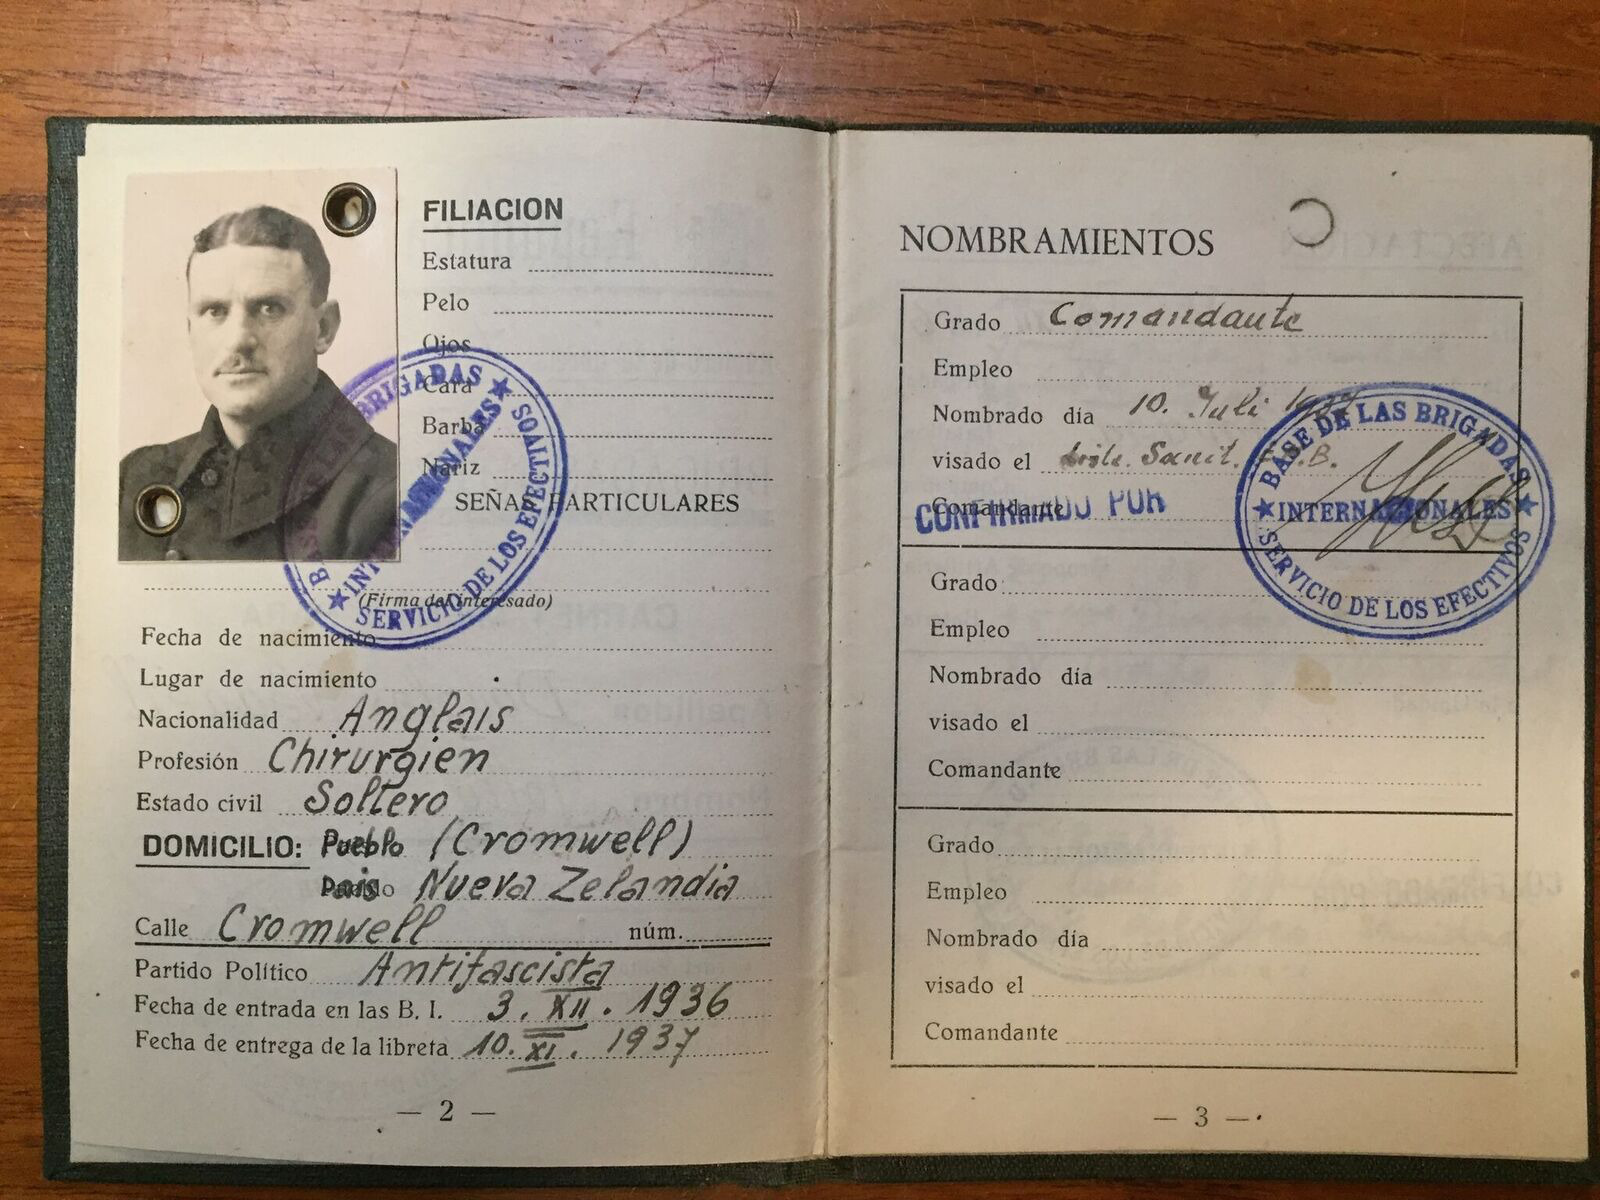 FILIACION
Estatura
Pelo
Ojos
Cara
Barba
Nariz
SEÑAS PARTICULARES
BASE DE LAS BRIGADAS
INTERNACIONALES
SERVICIO DE LOS EFECTIVOS
(Firma del interesado)
Fecha de nacimiento
Lugar de nacimiento
Nacionalidad Anglais
Profesión Chirurgien
Estado civil Soltero
DOMICILIO: Pueblo (Cromwell)
Pais Nueva Zelandia
Calle Cromwell núm.
Partido Político Antifascista
Fecha de entrada en las B. I. 3. XII. 1936
Fecha de entrega de la libreta 10. XI. 1937
— 2 —
NOMBRAMIENTOS
Grado Comandante
Empleo
Nombrado día 10. Juli 1937
visado el Sanit. B.
Comandante
CONFIRMADO POR
BASE DE LAS BRIGADAS
INTERNACIONALES
SERVICIO DE LOS EFECTIVOS
Grado
Empleo
Nombrado día
visado el
Comandante
Grado
Empleo
Nombrado día
visado el
Comandante
— 3 —